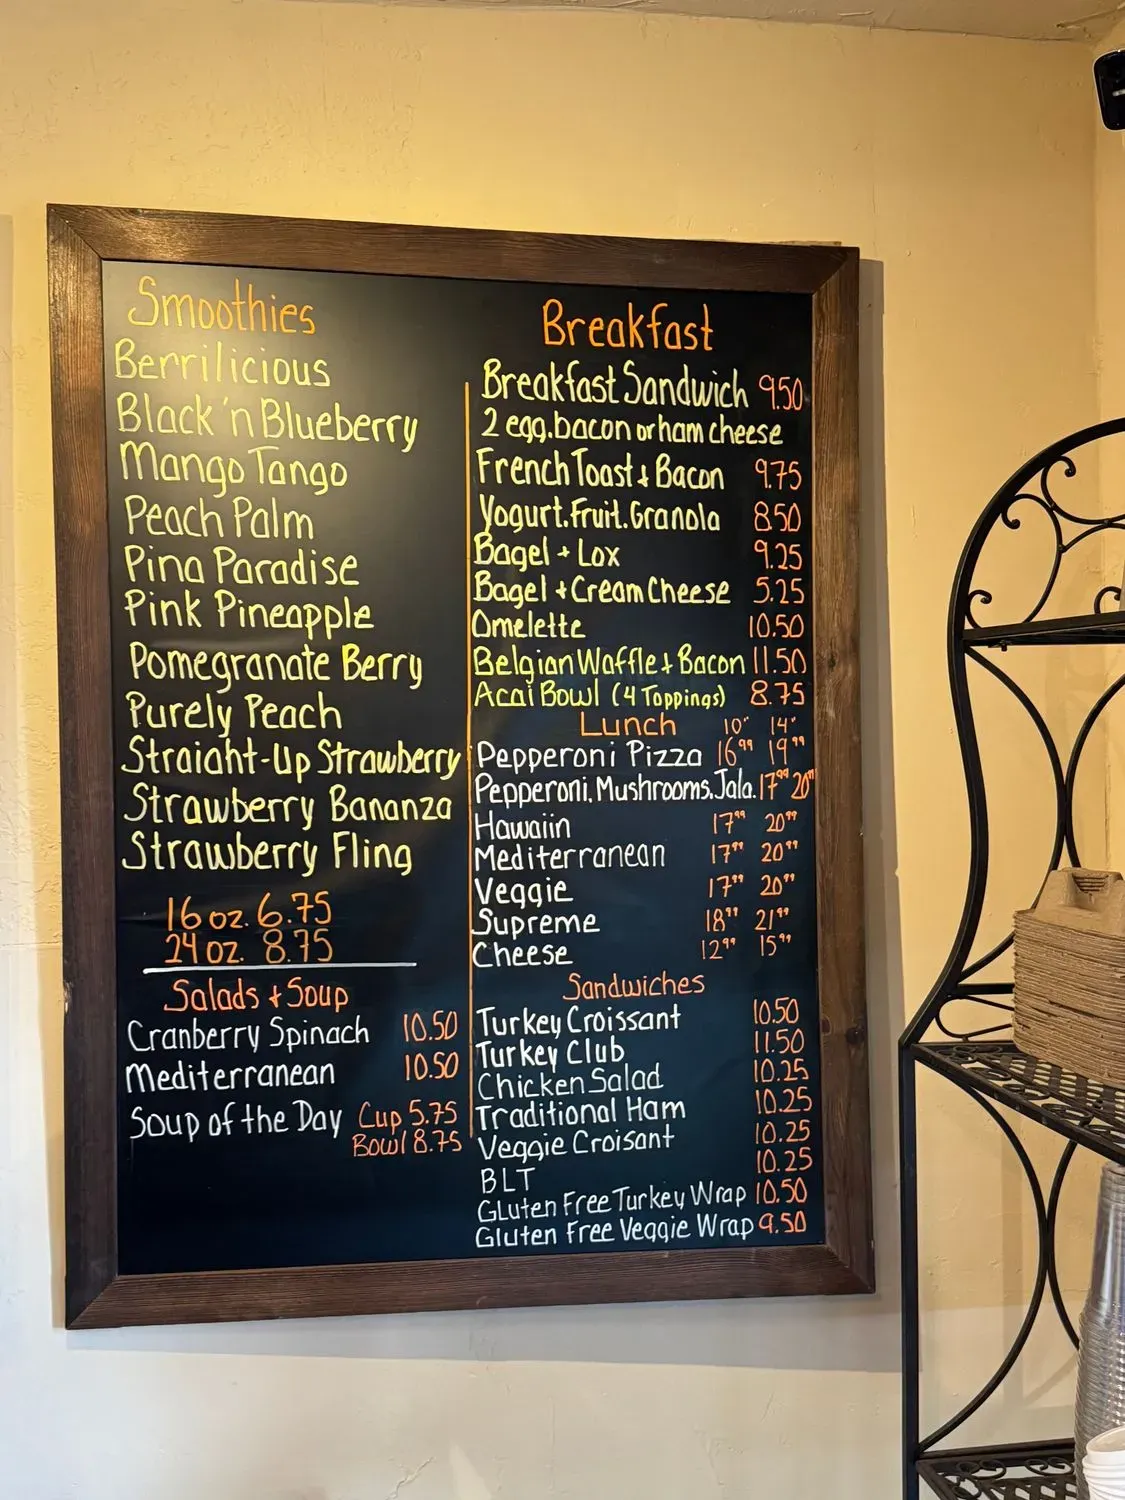 Smoothies
Berrilicious
Black 'n Blueberry
Mango Tango
Peach Palm
Pina Paradise
Pink Pineapple
Pomegranate Berry
Purely Peach
Straight-Up Strawberry
Strawberry Bananza
Strawberry Fling
16 oz. 6.75
24 oz. 8.75
Salads + Soup
Cranberry Spinach 10.50
Mediterranean 10.50
Soup of the Day Cup 5.75
Bowl 8.75
Breakfast
Breakfast Sandwich 9.50
2 egg.bacon or ham cheese
French Toast + Bacon 9.75
Yogurt.Fruit.Granola 8.50
Bagel + Lox 9.25
Bagel + Cream Cheese 5.25
Omelette 10.50
Belgian Waffle + Bacon 11.50
Acai Bowl (4 Toppings) 8.75
Lunch 10" 14"
Pepperoni Pizza 16⁹⁹ 19⁹⁹
Pepperoni, Mushrooms. Jala. 17⁹⁹ 20⁹⁹
Hawaiin 17⁹⁹ 20⁹⁹
Mediterranean 17⁹⁹ 20⁹⁹
Veggie 17⁹⁹ 20⁹⁹
Supreme 18⁹⁹ 21⁹⁹
Cheese 12⁹⁹ 15⁹⁹
Sandwiches
Turkey Croissant 10.50
Turkey Club 11.50
Chicken Salad 10.25
Traditional Ham 10.25
Veggie Croisant 10.25
BLT 10.25
Gluten Free Turkey Wrap 10.50
Gluten Free Veggie Wrap 9.50